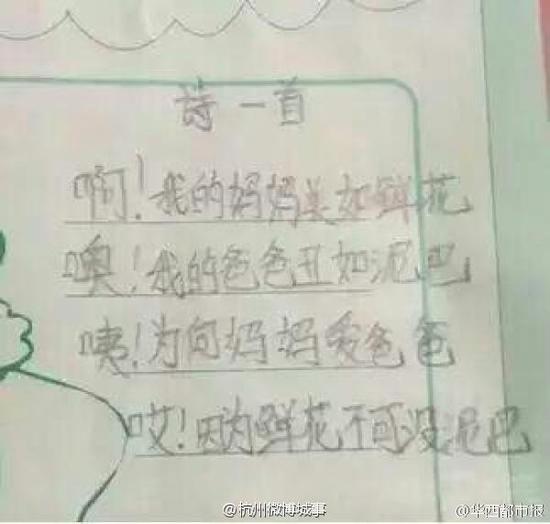 诗一首
啊!我的妈妈美如鲜花
噢!我的爸爸丑如泥巴
咦!为向妈妈爱爸爸
哎!因为鲜花不可没泥巴
@杭州微博城事
@华西都市报